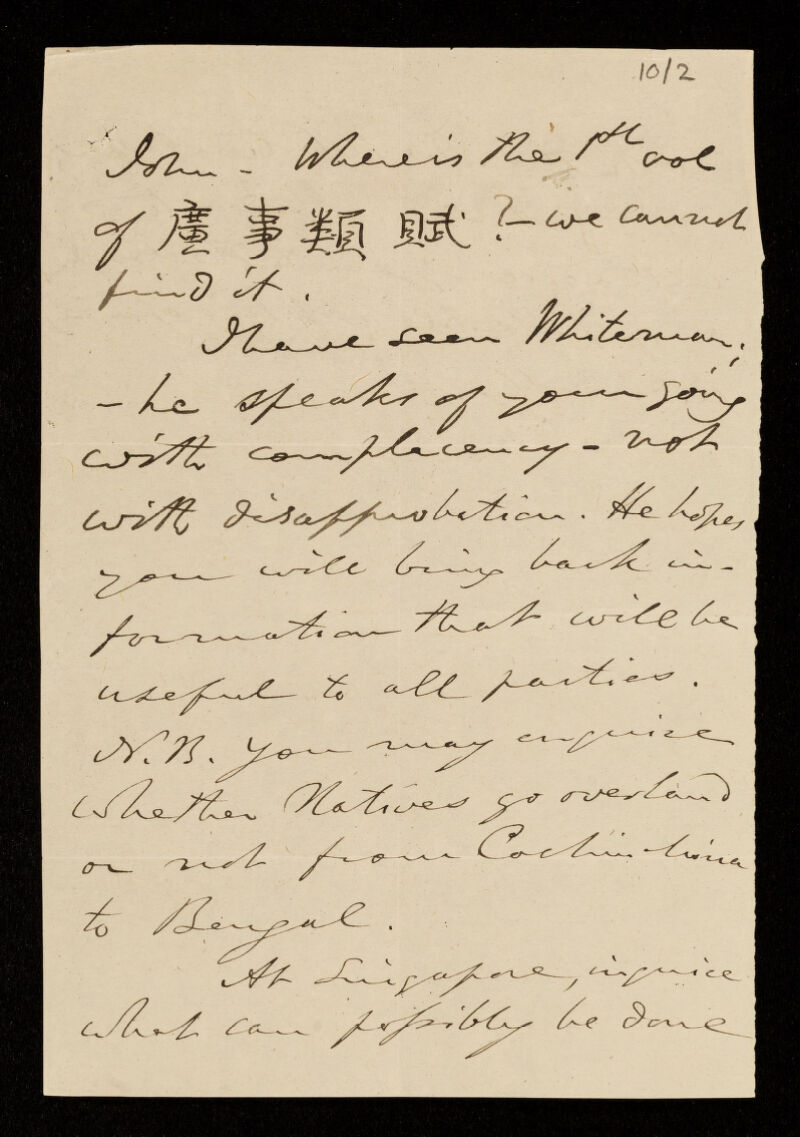 10/2
John - Where is the 1st vol
of 廣事類賦 ? - we cannot
find it.
I have seen Whiteman;
- he speaks of your going
with complacency - not
with disapprobation. He hopes
you will bring back in-
formation that will be
useful to all parties.
N.B. You may enquire
whether Natives go overland
or not from Cochinchina
to Bengal.
At Singapore, inquire
what can possibly be done